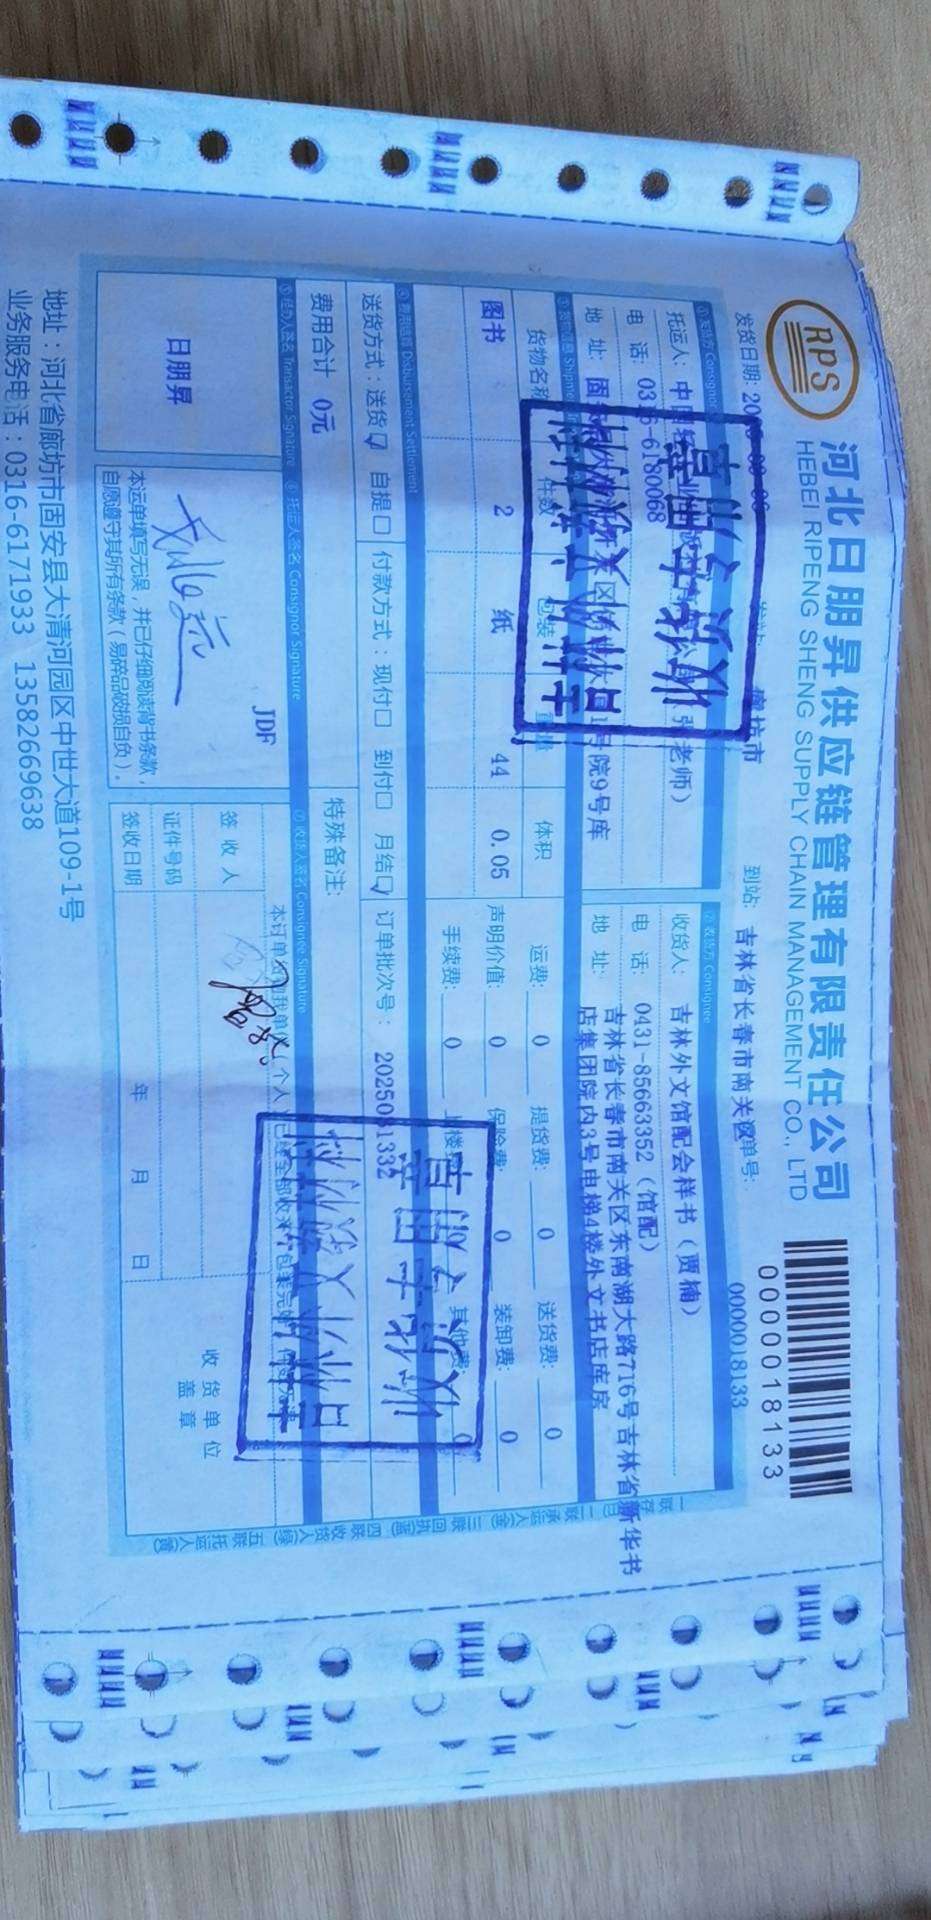 RPS
河北日朋昇供应链管理有限责任公司
HEBEI RIPENG SHENG SUPPLY CHAIN MANAGEMENT CO., LTD
0000018133
发货日期: 到站: 吉林省长春市南关区 单号: 0000018133
① 发货方 Consignor ② 收货方 Consignee
托运人: 张老师) 收货人: 吉林外文馆配会样书(贾楠)
电 话: 0316-6180068 电 话: 0431-85663352(馆配)
地 址: 固 院9号库 地 址: 吉林省长春市南关区东南湖大路716号吉林省新华书
店集团院内3号电梯4楼外文书店库房
货物名称 件数 包装 重量 体积 运费: 0 提货费: 0 送货费: 0
图书 2 纸 44 0.05 声明价值: 0 保险费: 0 装卸费: 0
手续费: 0 其他费: 0
④ 费用结算 Disbursement Settlement
送货方式:送货☑ 自提☐ 付款方式:现付☐ 到付☐ 月结☑ 订单批次号: 2025081332
费用合计 0元 特殊备注:
⑤ 经办人签名 Transactor Signature ⑥ 托运人签名 Consignor Signature ⑦ 收货人签名 Consignee Signature
日朋昇
JDF
本运单填写无误,并已仔细阅读背书条款,
自愿遵守其所有条款(易碎品破损自负)。
签 收 人
证件号码
签收日期 年 月 日
收货单位
盖 章
地址:河北省廊坊市固安县大清河园区中世大道109-1号
业务服务电话:0316-6171933 13582669638